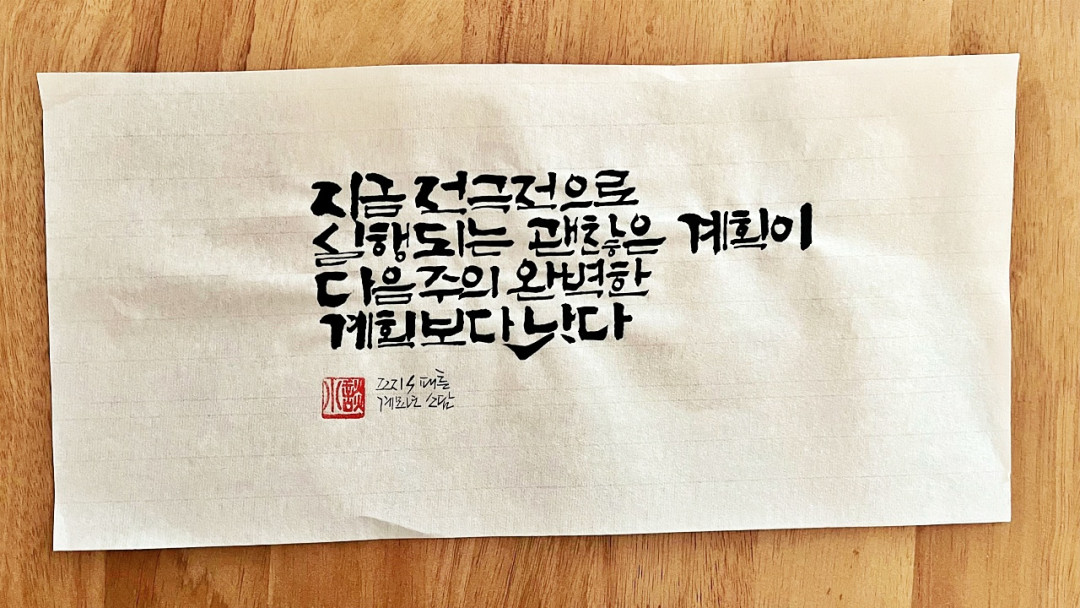 지금 적극적으로
실행되는 괜찮은 계획이
다음주의 완벽한
계획보다 낫다
조지 S 패튼
계묘년 소담
小談